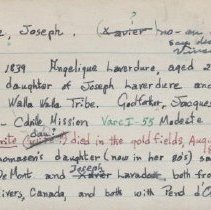 ?
e, Joseph. (Xavier no-an
say de
1839 Angelique Laverdure, aged 2
daughter of Joseph Laverdure and
Walla Walla Tribe. Godfather, Jacque
- Cdnite Mission Varc I-55 Modeste
day?
died in the gold fields, Aug
omasen's daughter (now in her 80's) sa
Joseph
DeMont and Xavier Lavadour, both fro
ivers, Canada, and both with Pend d'O